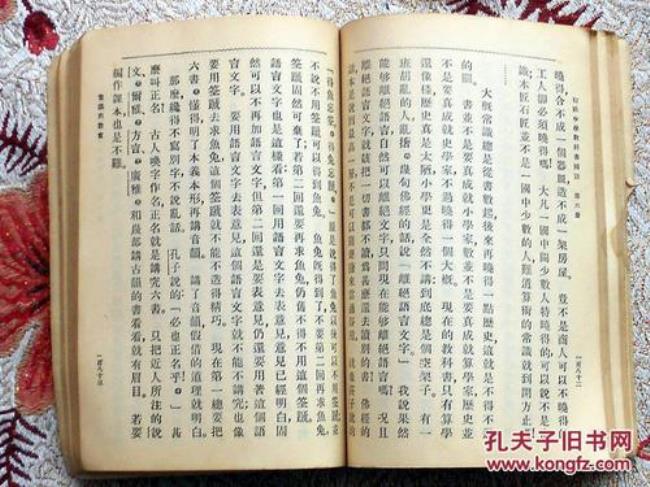 初級中學教科書國語 第六册
曉得,合不成一個器皿造不成一架房屋。 豈不是商人可以不曉得
工人卻必須曉得嗎! 大凡一國中間少數人特曉得的,可以說不是
識;木匠石匠並不是一國中少數的人,難道算術的常識就到開方止
的
大概常識總是從書數起,後來再曉得一點歷史,這就是不得不
書並不是要真成就小學家,數並不是要真成就算學家,歷史並
不是要真成就史學家,不過曉得一個大概。 現在的教科書只有算學
還像樣,歷史是太陋,小學更是全然不講,到底總是個空架子。 有一
班胡亂的人,亂搊幾句佛經的話,說「離絕語言文字。」 我說果然
能够離絕語言文字,只問現在能够離絕語言嗎? 況且
離絕語言文字,就該把一切書都不讀,爲甚麼還去讀別的書? 佛經的
話,本是說到最高一層,不是可以隨便拿來當通 就像莊子說的
一百八十二
「得魚忘筌」「得兔忘蹏,」原是說得了魚兔以後,可以不用筌蹏,並
不說不用筌蹏可以求得魚兔。 魚兔既得到了,不要第二回再求魚兔,
筌蹏固然可棄了;若第二回還要再求魚兔,仍舊不得不用這個筌蹏。
語言文字也是這樣看:第一回用語言文字去表意見,意見已經明白,固
然可以不再加語言文字,但第二回還是要表意見,仍還要用著這個語
言文字。 要用語言文字去表意見,這個語言文字就不能不講究,也像
要用筌蹏去求魚兔,這個筌蹏就不能不造得精巧。 現在第一總要把
六書懂得,明了本義本形,再講音韻。 講了音韻,假借的道理就明白。
那麼纔得不寫別字,不說亂話。 孔子說的「必也正名乎」 甚
麼叫正名 古人喚字作名,正名就是講究六書。 只把近人所注的說
文、爾雅、方言、廣雅和幾部講古韻的書看看,就有眉目。 若要
編作課本,也是不難。
常識與教育
一百八十三
孔夫子旧书网
www.kongfz.com